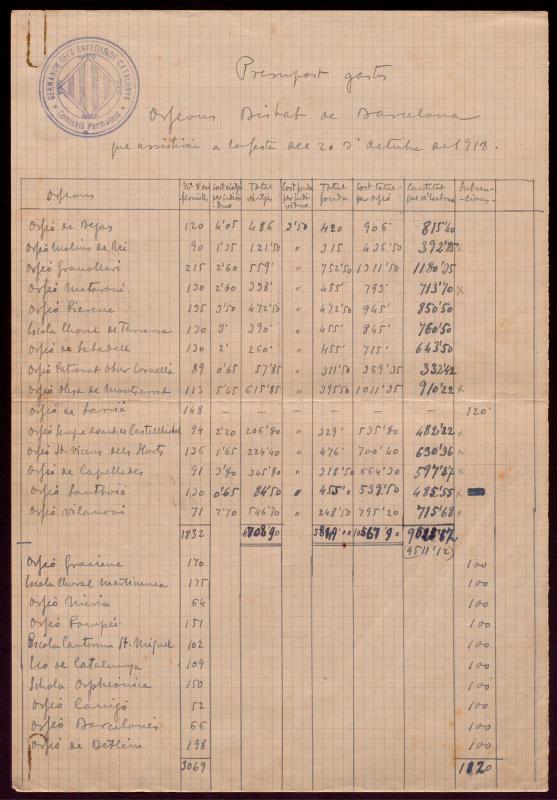 GERMANOR DELS ORFEONS DE CATALUNYA
Comissió Permanent
Presupost gastos
Orfeons Bisbat de Barcelona
que assistirán a la festa del 20 d'Octubre del 1918.
Orfeons Nº d'orfeonista Cost viatge per individuo Total viatges Cost fonda per individuo Total fonda Cost total per orfeó Cantitat Subvencions
Orfeó de Begas 120 4'05 486 3'50 420 906' 815'40
Orfeó Molins de Rei 90 1'35 121'50 " 315 436'50 392'85
Orfeó Granollerí 215 2'60 559' " 752'50 1311'50 1180'35
Orfeó Mataroní 130 2'60 338' " 455' 793' 713'70 x
Orfeó Pierenc 135 3'50 472'50 " 472'50 945' 850'50
Escola Choral de Terrassa 130 3' 390' " 455' 845' 760'50
Orfeó de Sabadell 130 2' 260' " 455' 715' 643'50
Orfeó Patronat Obrer Cornellà 89 0'65 57'85 " 311'50 369'35 332'42
Orfeó Olesa de Montserrat 113 5'45 615'85 " 395'50 1011'35 910'22 x
Orfeó de Sarriá 148 – – – – – – 120'
Orfeó Sempre Avant de Castellbisbal 94 2'20 206'80 " 329' 535'80 482'22 x
Orfeó St. Vicens dels Horts 136 1'65 224'40 " 476' 700'40 630'36 x
Orfeó de Capellades 91 3'80 345'80 " 318'50 664'30 597'87 x
Orfeó Santboiá 130 0'65 84'50 " 455' 539'50 485'55 x
Orfeó Vilanoví 71 7'70 546'70 " 248'50 795'20 715'68 x
1832
(9511'12)
Orfeó Gracienc 170 100
Escola Choral Martinenca 175 100
Orfeó Núria 64 100
Orfeó Pompeia 151 100
Escola Cantorum St. Miquel 102 100
Eco de Catalunya 109 100
Schola Orpheónica 150 100
Orfeó Canigó 52 100
Orfeó Barcelonés 66 100
Orfeó de Betlém 198 100
3069 1120